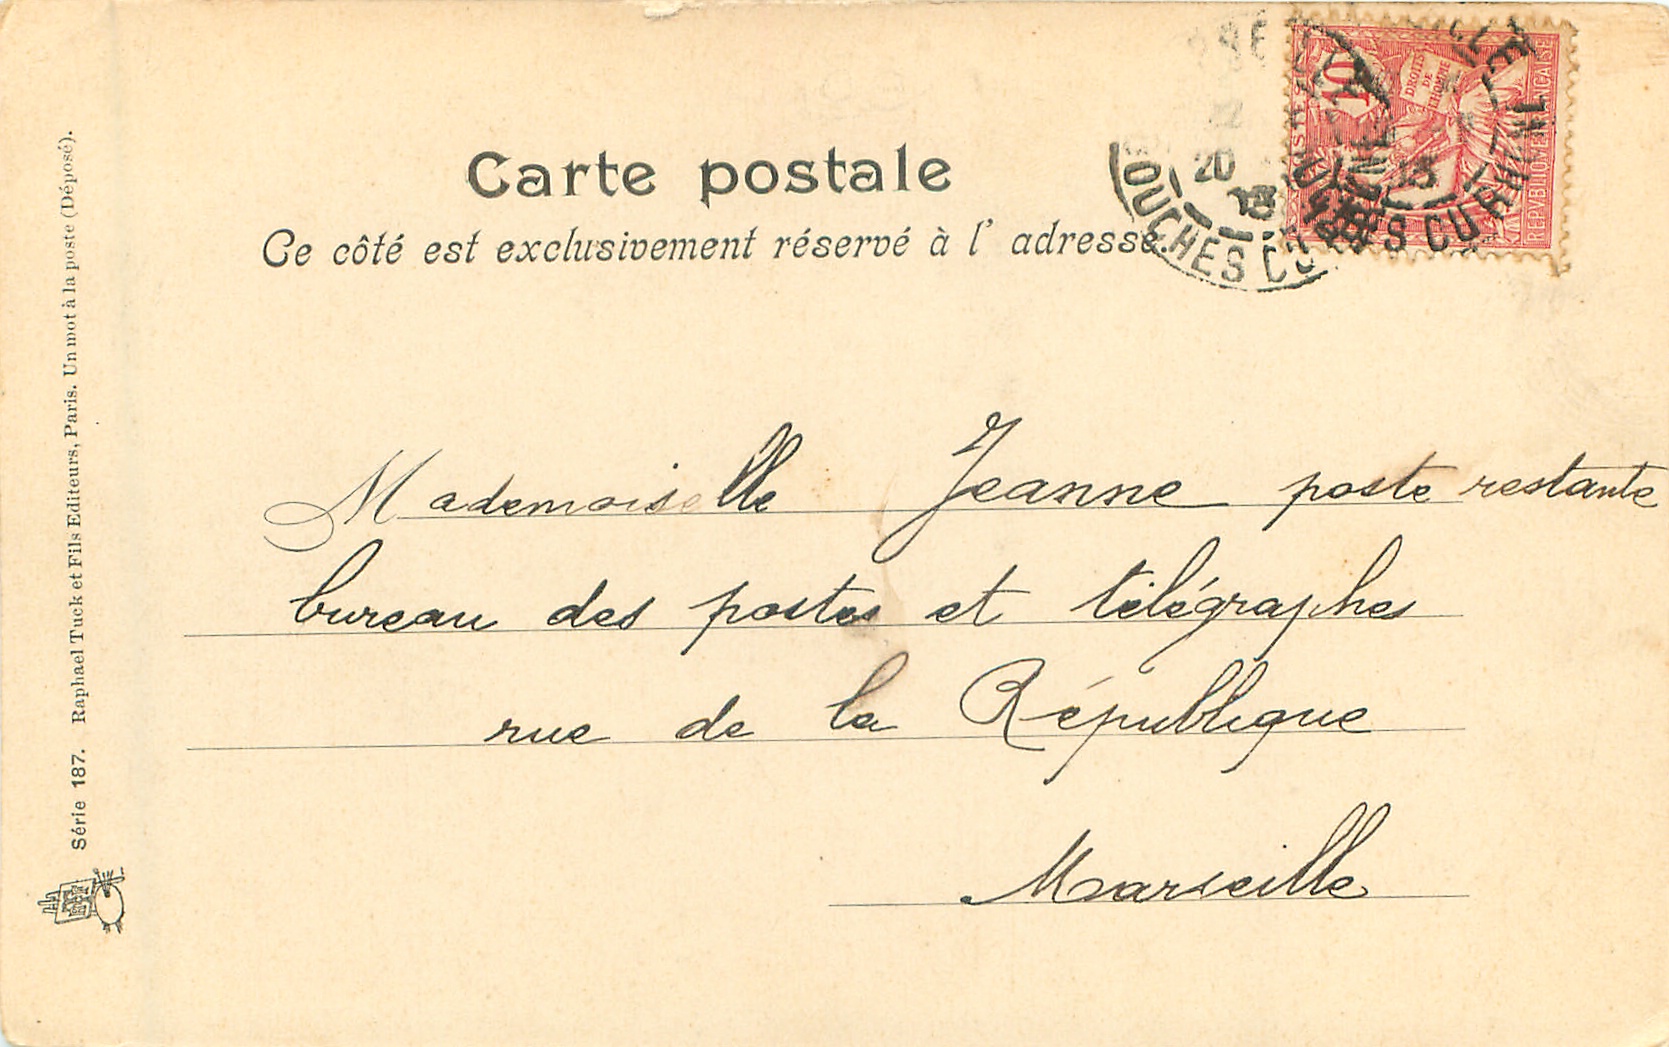 Carte postale
Ce côté est exclusivement réservé à l' adresse.
Mademoiselle Jeanne poste restante
bureau des postes et télégraphes
rue de la République
Marseille
Série 187. Raphael Tuck et Fils Editeurs, Paris. Un mot à la poste (Déposé).
10
DROITS
DE
L'HOMME
REPVBLIQVE FRANÇAISE
20